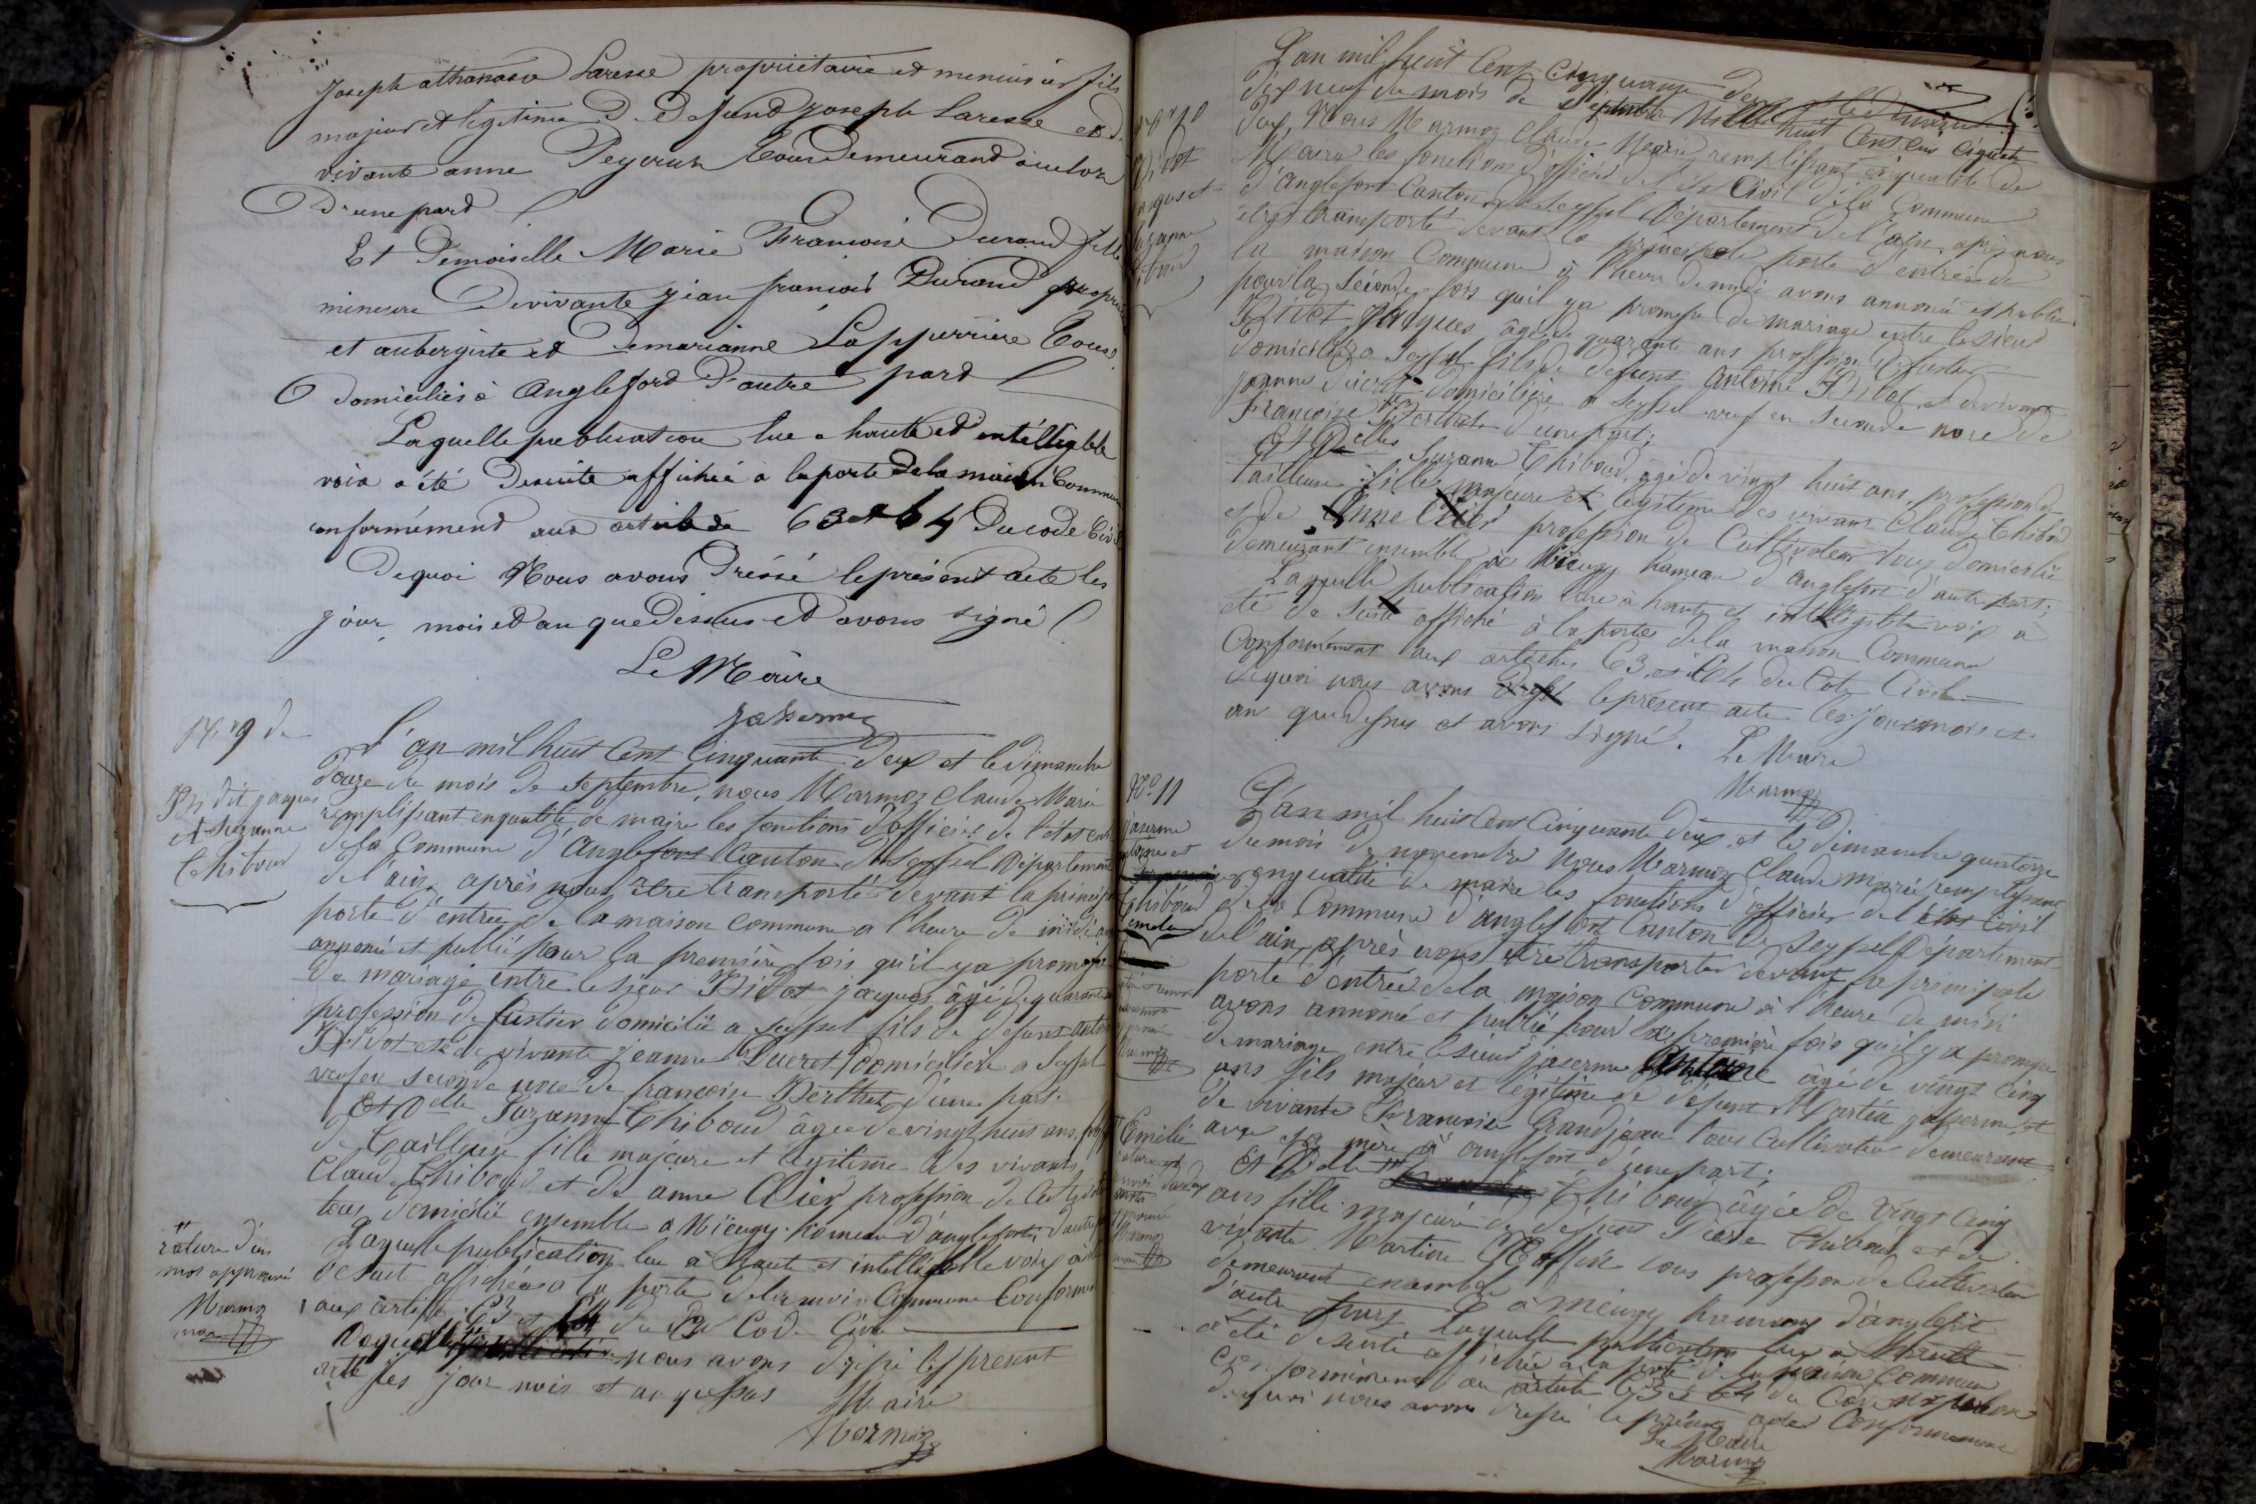 Joseph athanase Laresse propriétaire et menuisier fils
majeur et légitime De Defund Joseph Laresse et d.
vivante anne Peycrus tous demeurand à
D'une pard
Et Demoiselle Marie Françoise Durand fille
mineure De vivante jean françois Durand propriétaire
et aubergiste et De marianne Lapperrière tous
domiciliés à Angleford D'autre pard
Laquelle publication lue a haute et intélligible
voix a été Desuite affichée à la porte De la maison Commune
conformémend aux article de 63 et 64 Du code Civil
De quoi Nous avons Dréssé le présent acte les
jour mois et an que Dessus et avons signé
Le Maire
N° 9 de
Bidot jaques
et Suzanne
Thiboud
L'an mil huit Cent Cinquante Deux et le Dimanche
douze du mois de Septembre, nous Marmoz Claude Marie
remplissant en qualité de maire les fonctions d'officier de l'état civil
de la Commune d'Anglefort Canton de Seyssel Département
de l'ain, après nous être transporté devant la principale
porte d'entrée de la maison commune a l'heure de midi avons
annoncé et publié pour la première fois qu'il y a promesse
de mariage entre le sieur Bidot jaques âgé de quarante ans
profession de fustier domicilié a Seyssel fils de défunt antoine
Bidot et de vivante jeanne Ducret domiciliée a Seyssel
veuf en seconde noce de françoise Berthet d'une part.
Et Delle Suzanne Thiboud âgée de vingt huit ans, prof
de Tailleuse fille majeure et légitime des vivants
Claude Thiboud et de anne Clier profession de Cultivateur
tous domicilié ensemble a Mieugy hameau d'anglefort, d'autre part
Laquelle publication lue à haute et intelligible voix a été
de Suite affichée a la porte de la maison Commune Conformé
aux article 63 et 64 du Code Civil
Dequoi nous avons dressé le present
acte les jour mois et an que dessus
Maire
Marmoz
rature d'un
mot approuvé
Marmoz
L'an mil huit Cent Cinquante Deux et le dimanche
dix neuf du mois de Septembre Mille huit Cent Cinquante
deux, Nous Marmoz Claude Marie remplissant en qualité de
Maire les fonctions d'officier de l'état Civil de la Commune
d'Anglefort Canton de Seyssel Département de l'ain, après nous
être transporté devant la principale porte d'entrée de
la maison Commune à l'heure de midi avons annoncé et publié
pour la Séconde fois qu'il y a promesse de mariage entre le Sieur
Bidot Jacques âgé de quarante ans profession de fustier
domicilié a Seyssel fils de défunt Antoine Bidot et de vivante
jeanne Ducret domiciliée a Seyssel veuf en seconde noce de
Françoise Berthet d'une part;
Et Delle Suzanne Thiboud, âgé de vingt huit ans, profession de
tailleuse fille majeure et légitime des vivant Claude Thiboud
et de Anne Clier profession de Cultivateur tous domicilié
demeurant ensemble à Mieugy hameau d'anglefort d'autre part;
Laquelle publication lue à haute et intelligible voix a
été de Suite affiché à la porte de la maison Commune
Conformément aux articles 63 et 64 du Code Civil
dequoi nous avons dressé le présent acte les jour mois et
an que dessus et avons signé.
Le Maire
Marmoz
N° 11
L'an mil huit Cent Cinquante deux et le dimanche quatorze
du mois de novembre Nous Marmoz Claude Marie remplissant
en qualité de maire les fonctions d'officier de l'état Civil
de la Commune d'anglefort Canton de Seyssel Département
de l'ain, après nous être transporté devant la principale
porte d'entrée de la maison Commune à l'heure de midi
avons annoncé et publié pour la première fois qu'il y a promesse
de mariage entre le sieur jaserme Antoine âgé de vingt Cinq
ans fils majeur et légitime de défunt Martin jaserme et
de vivante Françoise Grandjean tous Cultivateur demeurant
avec sa mère à anglefort d'une part;
Et Delle Thiboud âgée de Vingt Cinq
ans fille majeure de défunt Pierre Thiboud et de
vivante Martine tous profession de Cultivateur
demeurant ensemble a Mieugy hameau d'anglefort
d'autre part Laquelle publication lue a haute
a été de suite affichée à la porte de la maison Commune
conformément au article 63 et 64 du Code
dequoi nous avons dressé le présent acte Conformément
Le Maire
Marmoz